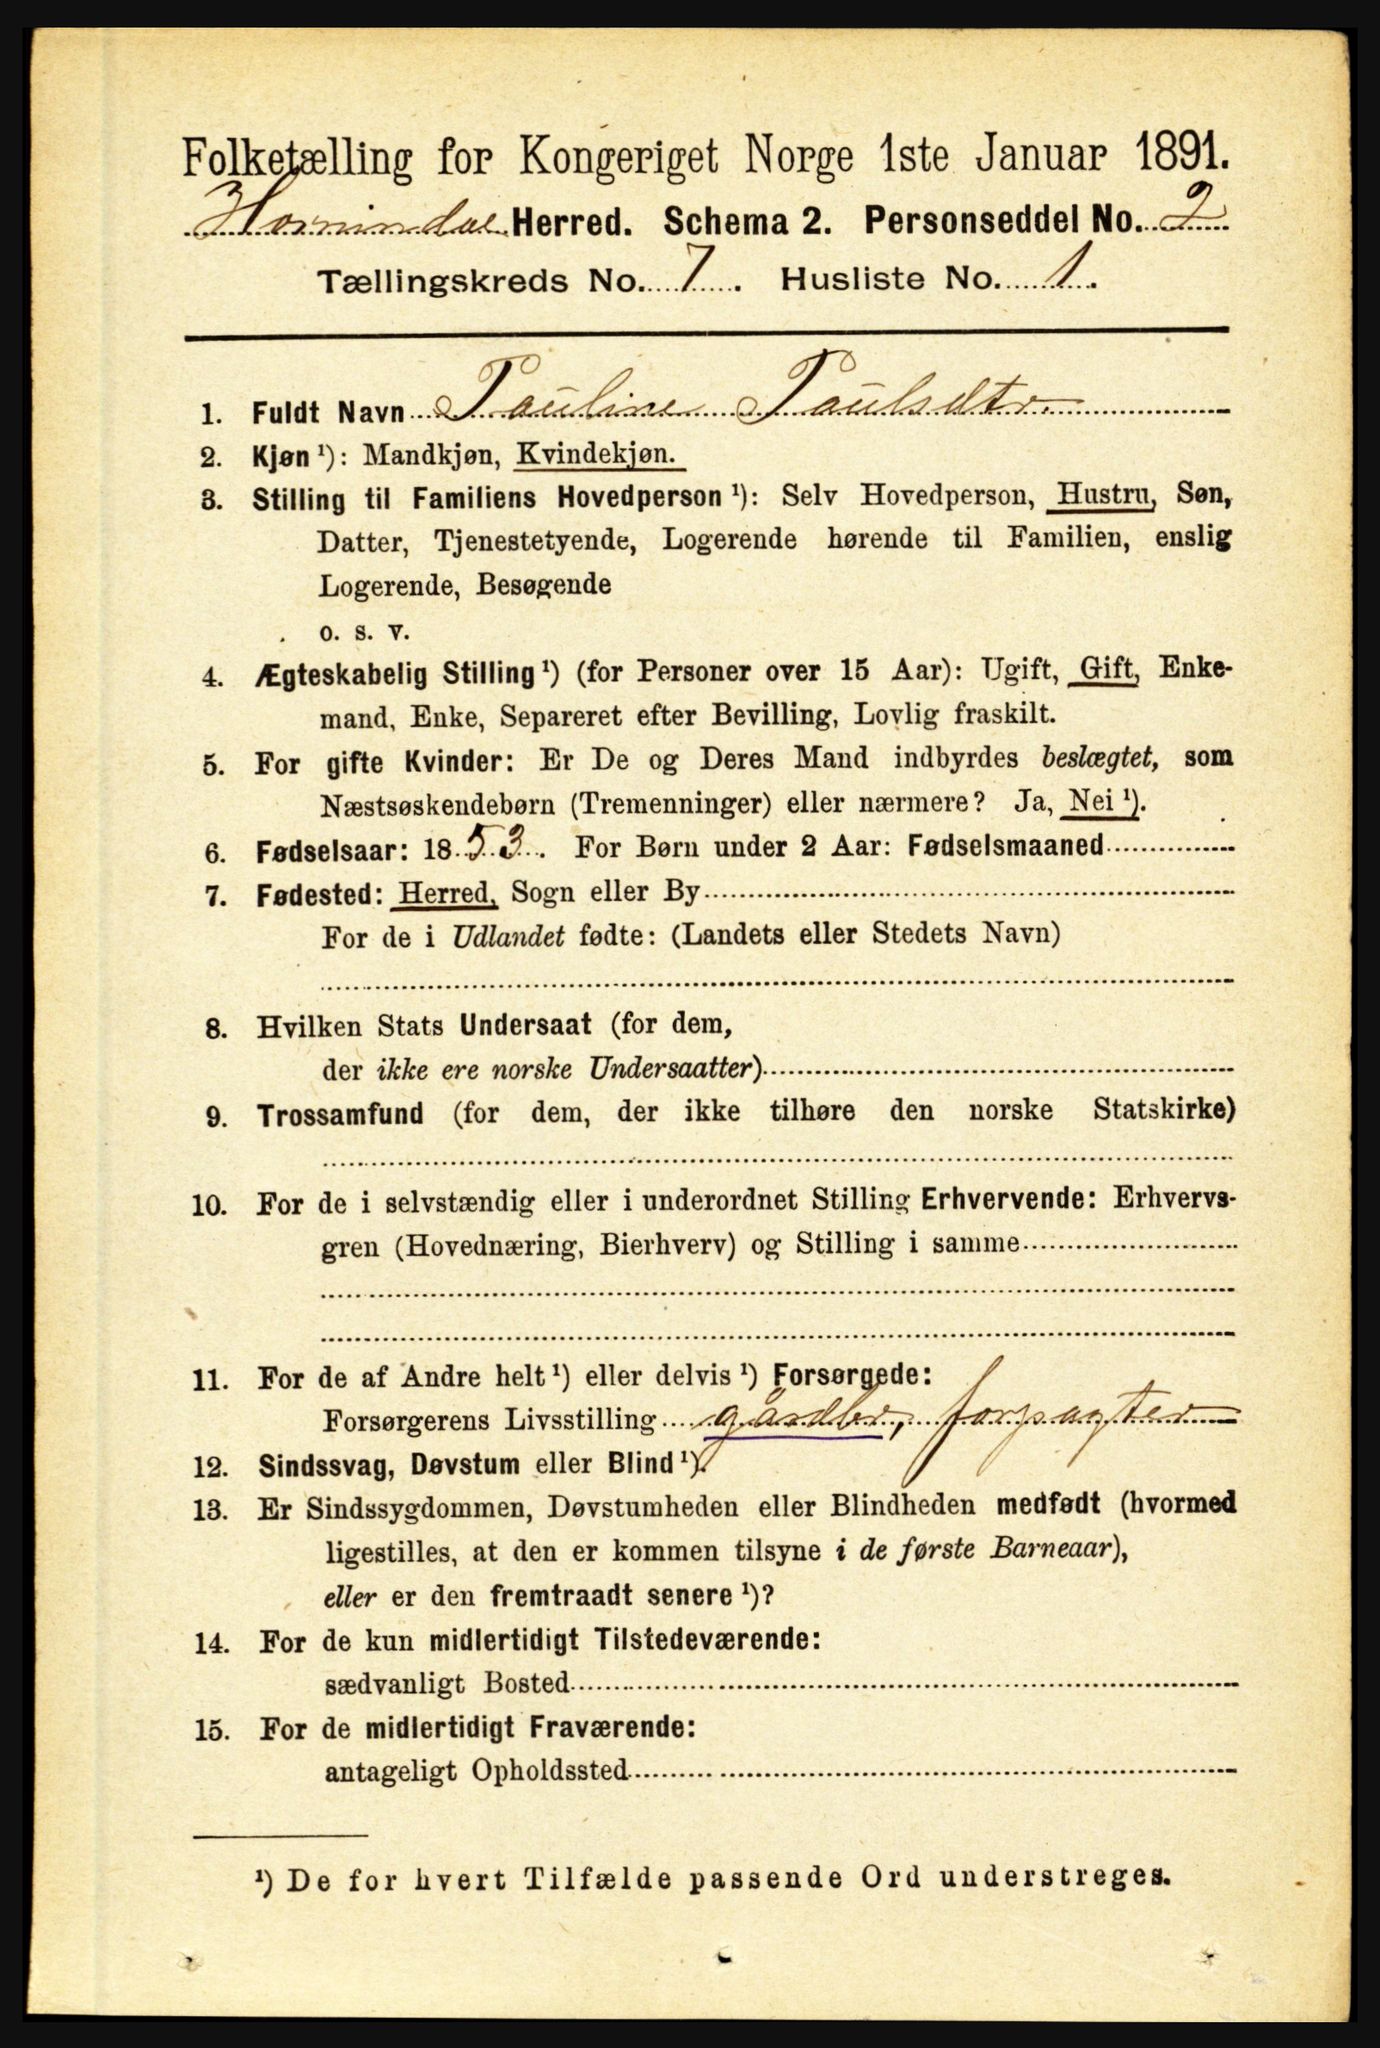 Folketælling for Kongeriget Norge 1ste Januar 1891.
Hornindal Herred. Schema 2. Personseddel No. 2
Tællingskreds No. 7. Husliste No. 1.
1. Fuldt Navn Pauline Paulsdtr.
2. Kjøn ¹): Mandkjøn, Kvindekjøn.
3. Stilling til Familiens Hovedperson ¹): Selv Hovedperson, Hustru, Søn,
Datter, Tjenestetyende, Logerende hørende til Familien, enslig
Logerende, Besøgende
o. s. v.
4. Ægteskabelig Stilling ¹) (for Personer over 15 Aar): Ugift, Gift, Enke-
mand, Enke, Separeret efter Bevilling, Lovlig fraskilt.
5. For gifte Kvinder: Er De og Deres Mand indbyrdes beslægtet, som
Næstsøskendebørn (Tremenninger) eller nærmere? Ja, Nei ¹).
6. Fødselsaar: 1853. For Børn under 2 Aar: Fødselsmaaned
7. Fødested: Herred, Sogn eller By
For de i Udlandet fødte: (Landets eller Stedets Navn)
8. Hvilken Stats Undersaat (for dem,
der ikke ere norske Undersaatter)
9. Trossamfund (for dem, der ikke tilhøre den norske Statskirke)
10. For de i selvstændig eller i underordnet Stilling Erhvervende: Erhvervs-
gren (Hovednæring, Bierhverv) og Stilling i samme
11. For de af Andre helt ¹) eller delvis ¹) Forsørgede:
Forsørgerens Livsstilling gårdbr, forpagter
12. Sindssvag, Døvstum eller Blind ¹).
13. Er Sindssygdommen, Døvstumheden eller Blindheden medfødt (hvormed
ligestilles, at den er kommen tilsyne i de første Barneaar),
eller er den fremtraadt senere ¹)?
14. For de kun midlertidigt Tilstedeværende:
sædvanligt Bosted
15. For de midlertidigt Fraværende:
antageligt Opholdssted
¹) De for hvert Tilfælde passende Ord understreges.